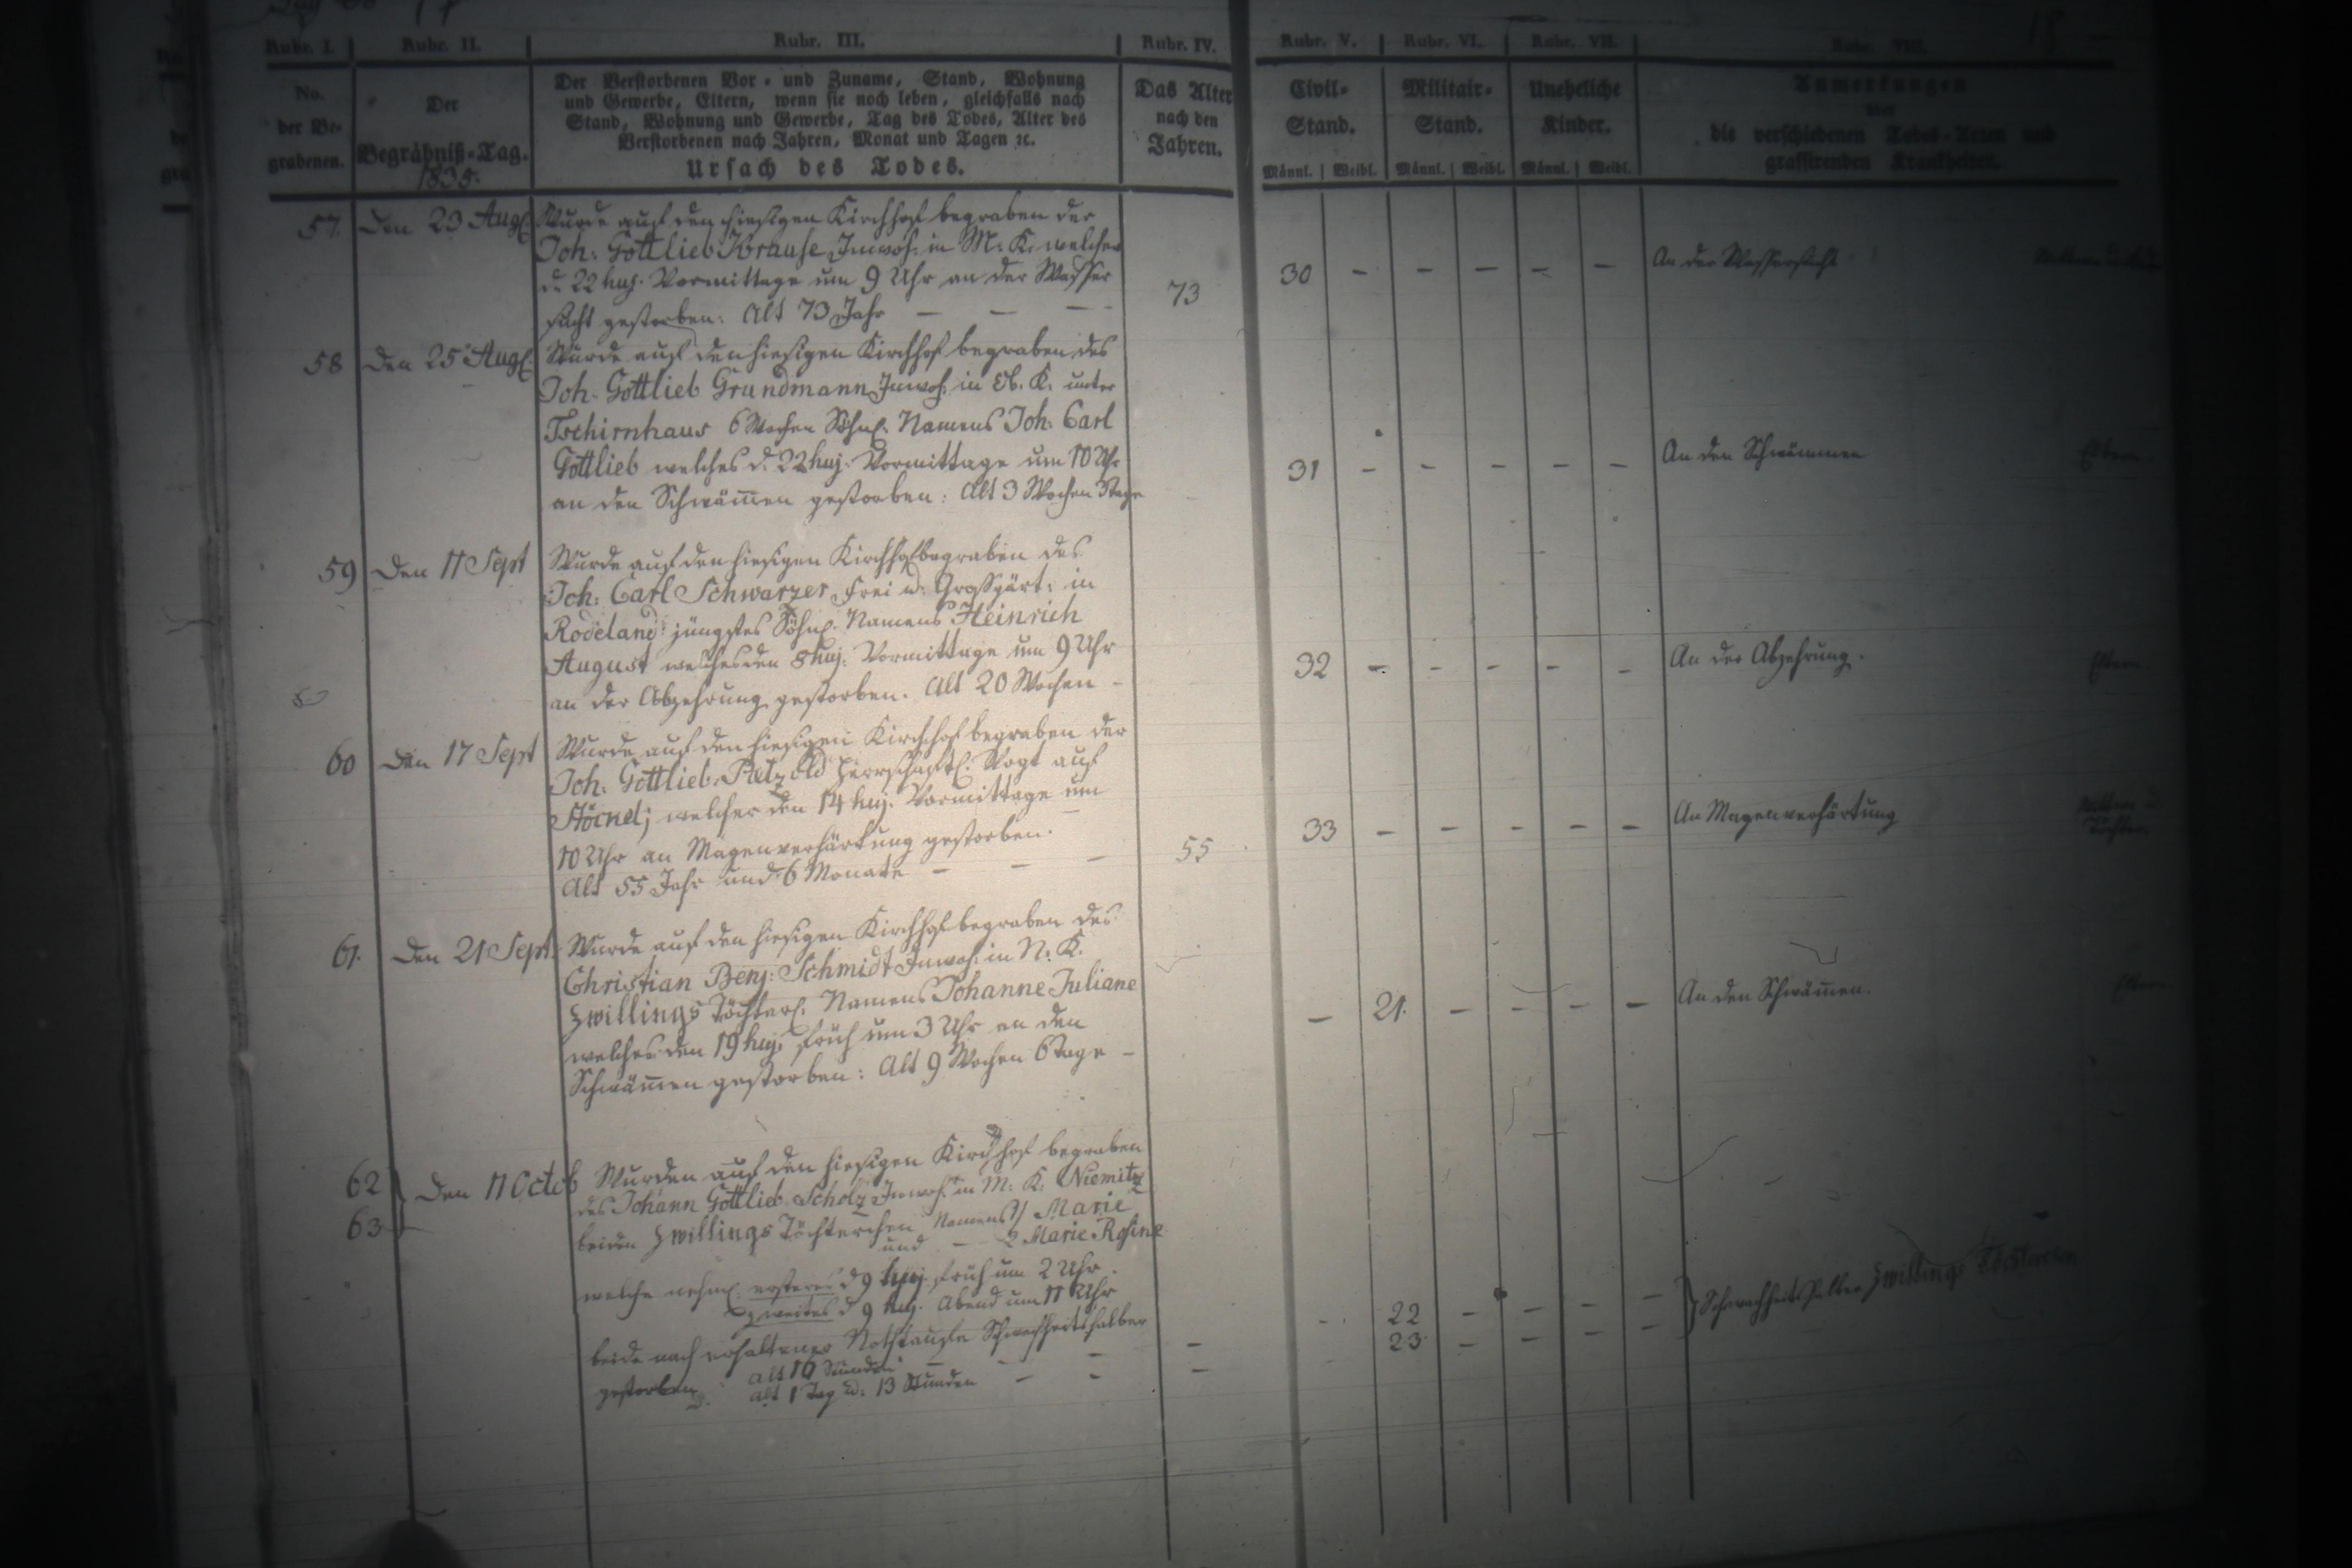 Rubr. I. Rubr. II. Rubr. III. Rubr. IV. Rubr. V. Rubr. VI. Rubr. VII. Rubr. VIII.
No.
der Be-
grabenen.
Der
Begräbniß-Tag.
1835.
Der Verstorbenen Vor- und Zuname, Stand, Wohnung
und Gewerbe, Eltern, wenn sie noch leben, gleichfalls nach
Stand, Wohnung und Gewerbe, Tag des Todes, Alter des
Verstorbenen nach Jahren, Monat und Tagen ꝛc.
Ursach des Todes.
Das Alter
nach den
Jahren.
Civil-
Stand.
Männl. Weibl.
Militair-
Stand.
Männl. Weibl.
Uneheliche
Kinder.
Männl. Weibl.
Anmerkungen
über
die verschiedenen Todes-Arten und
grassirenden Krankheiten.
57. Den 23 Augs. Wurde auf den hiesigen Kirchhof begraben der
Joh: Gottlieb Krause Inwoh: in M: K. welcher
d. 22 huj. Vormittage um 9 Uhr an der Wasser
sucht gestorben: Alt 73 Jahr — — —
73 30 - - - - - An der Wassersucht
58 Den 25 Augs. Wurde auf den hiesigen Kirchhof begraben des
Joh. Gottlieb Grundmann Inwoh: in Ob. K. unter
Tschirnhaus 6 Wochen Söhnl. Namens Joh: Carl
Gottlieb welches d. 22 huj: Vormittage um 10 Uhr
an den Schwämen gestorben: Alt 3 Wochen 3 Tage
31 - - - - - An den Schwämmen Eltern
59 Den 11 Sept Wurde auf den hiesigen Kirchhof begraben des
Joh: Carl Schwarzer Frei u: Großgärt: in
Rodeland jüngstes Söhnl. Namens Heinrich
August welches den 8 huj: Vormittage um 9 Uhr
an der Abzehrung gestorben. Alt 20 Wochen -
32 - - - - - An der Abzehrung. Eltern
60 Den 17 Sept Wurde auf den hiesigen Kirchhof begraben der
Joh: Gottlieb Pätzold Herrschaftl. Vogt auf
welcher den 14 huj. Vormittage um
10 Uhr an Magenverhärtung gestorben. —
Alt 55 Jahr und 6 Monate — — —
55 33 - - - - - An Magenverhärtung
61. Den 21 Sept: Wurde auf den hiesigen Kirchhof begraben des
Christian Benj: Schmidt Inwoh: in N: K.
Zwillings Töchterl. Namens Johanne Juliane
welches den 19 huj. früh um 3 Uhr an den
Schwämen gestorben: Alt 9 Wochen 6 Tage —
— 21. - - - - An den Schwämen. Eltern
62
63
Den 11 Octob Wurden auf den hiesigen Kirchhof begraben
des Johann Gottlieb Scholz Inwoh: in M: K: Niemitz
beiden Zwillings Töchterchen Namens 1/ Marie
und — 2 Marie Rosine
welche nehml: ersteres d 9 huj. früh um 2 Uhr.
zweites d 9 huj. Abend um 11 Uhr
beide nach erhaltener Nothtaufe Schwachheitshalber
gestorben. alt 16 Stunden — - -
alt 1 Tag u: 13 Stunden — - -
22 - - - -
23 - - - -
Schwachheits halber Zwillings Töchterchen